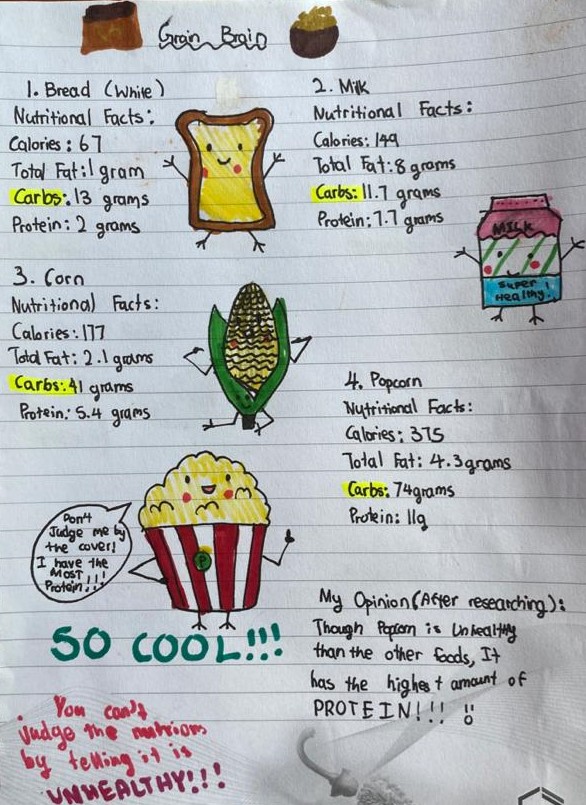 Grain Brain
1. Bread (White)
Nutritional Facts:
Calories: 67
Total Fat: 1 gram
Carbs: 13 grams
Protein: 2 grams
2. Milk
Nutritional Facts:
Calories: 149
Total Fat: 8 grams
Carbs: 11.7 grams
Protein: 7.7 grams
MILK
Super
Healthy.
3. Corn
Nutritional Facts:
Calories: 177
Total Fat: 2.1 grams
Carbs: 41 grams
Protein: 5.4 grams
4. Popcorn
Nutritional Facts:
Calories: 375
Total Fat: 4.3 grams
Carbs: 74 grams
Protein: 11g
Don't
Judge me by
the cover!
I have the
MOST
Protein!!!
P
SO COOL!!!
My Opinion (After researching):
Though Popcorn is Unhealthy
than the other foods, It
has the highest amount of
PROTEIN!!!
You can't
judge the nutrions
by telling it is
UNHEALTHY!!!